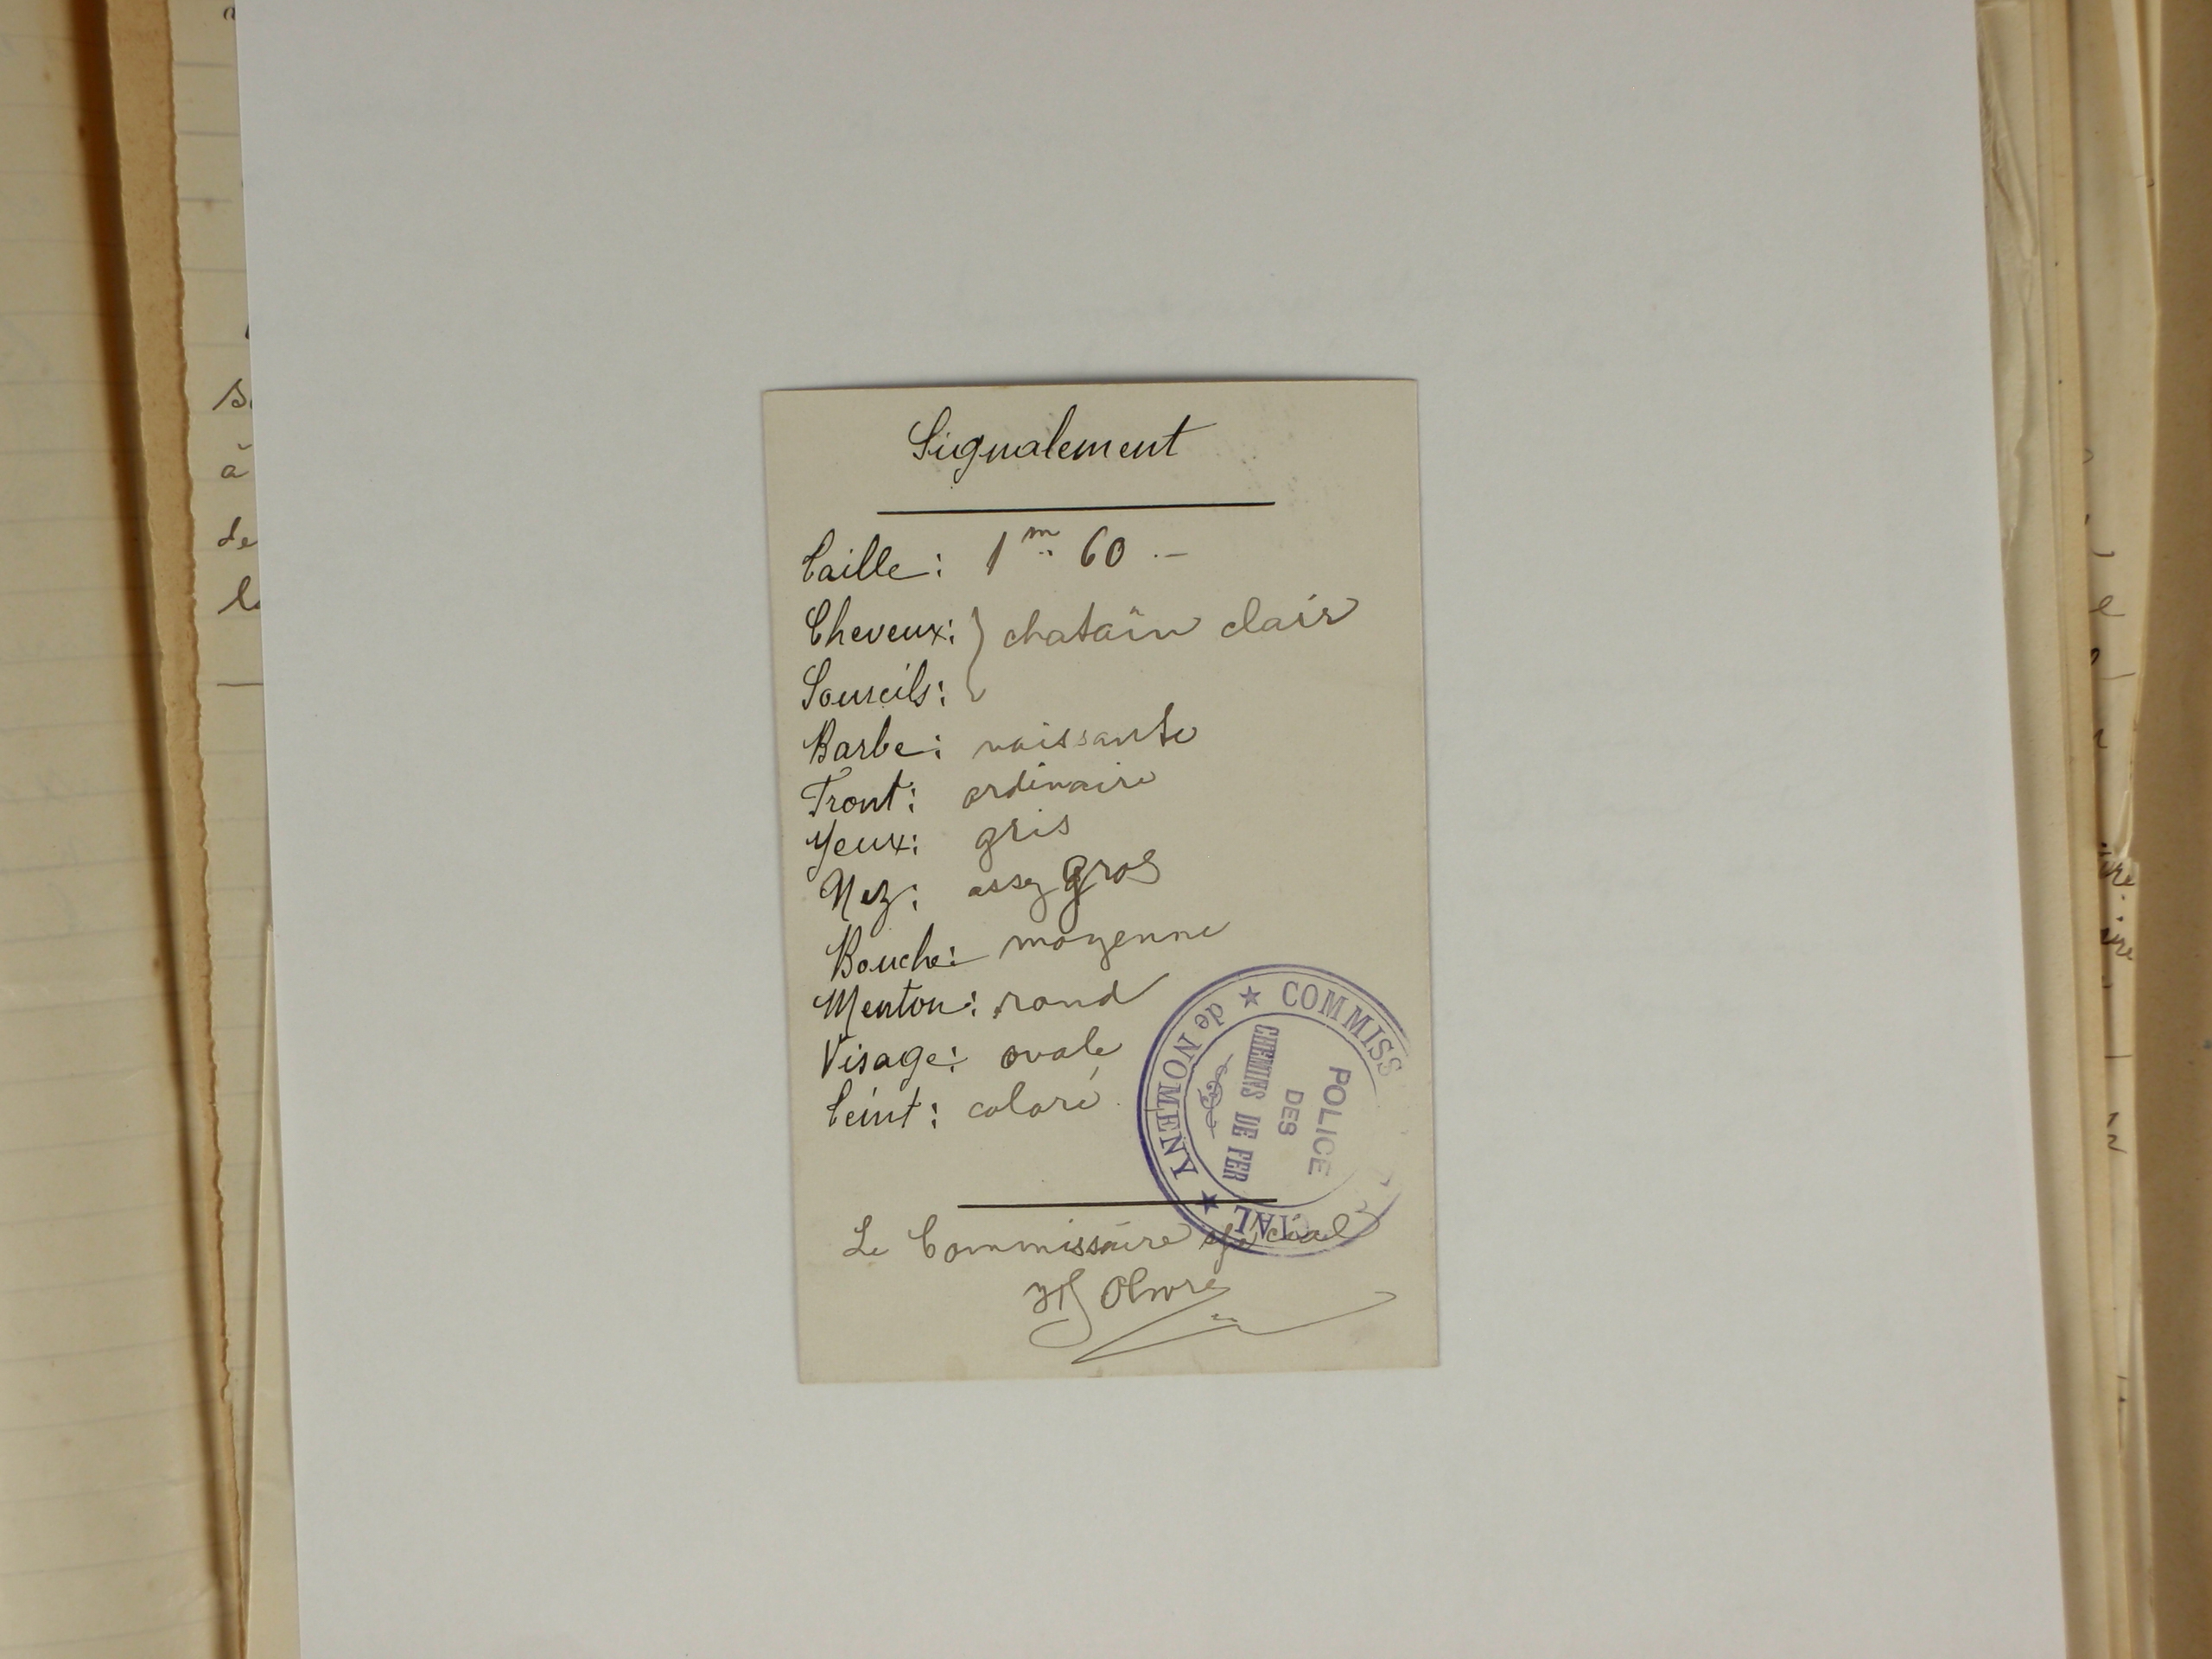 Signalement
Taille: 1m 60 -
Cheveux: } chatain clair
Sourcils:
Barbe: naissante
Front: ordinaire
Yeux: gris
Nez: assez gros
Bouche: moyenne
Menton: rond
Visage: ovale
Teint: coloré
Le Commissaire spécial
COMMISS CIAL ★ de NOMENY ★
POLICE
DES
CHEMINS DE FER
à
de